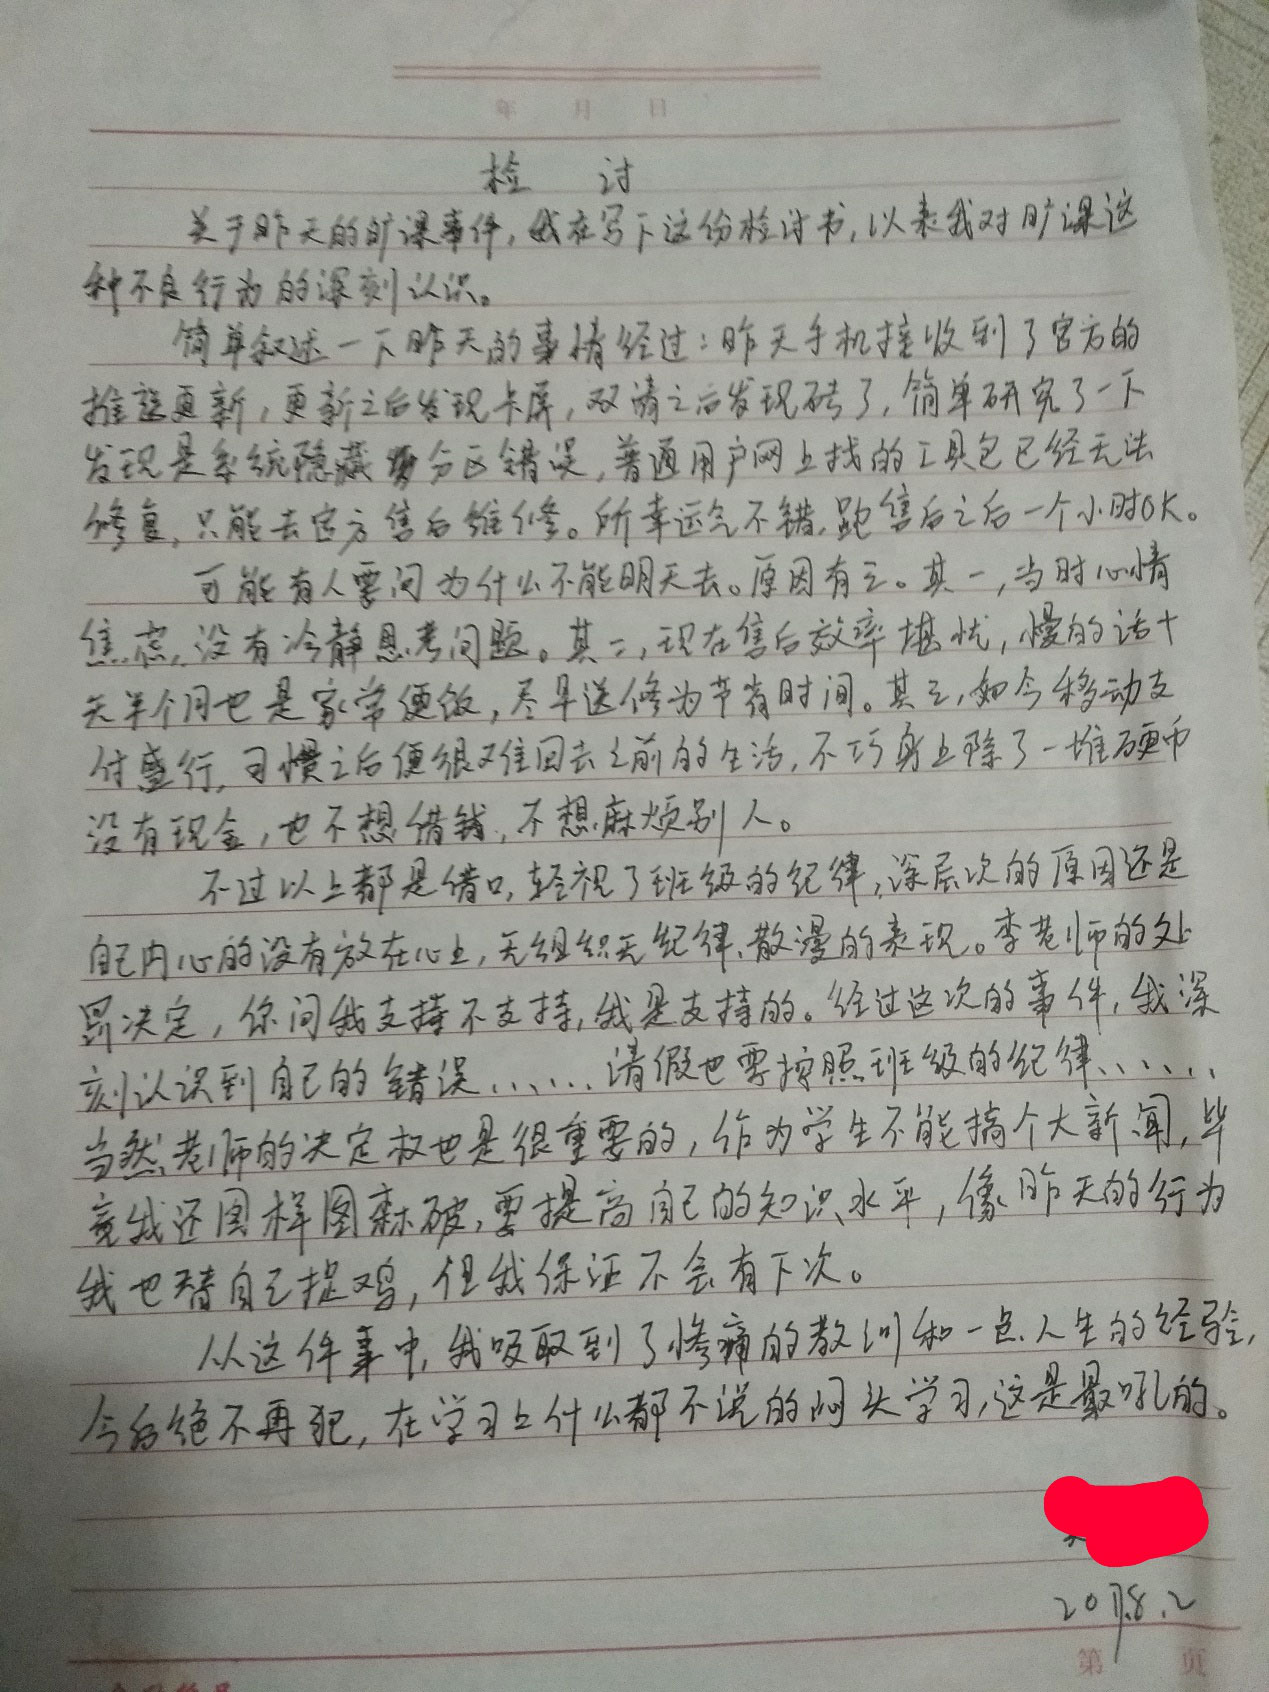 年 月 日
检 讨
关于昨天的旷课事件，我在写下这份检讨书，以表我对旷课这
种不良行为的深刻认识。
简单叙述一下昨天的事情经过：昨天手机接收到了官方的
推送更新，更新之后发现卡屏，双清之后发现砖了，简单研究了一下
发现是系统隐藏分区错误，普通用户网上找的工具包已经无法
修复，只能去官方售后维修。所幸运气不错，跑售后之后一个小时OK。
可能有人要问为什么不能明天去。原因有三。其一，当时心情
焦虑，没有冷静思考问题。其二，现在售后效率堪忧，慢的话十
天半个月也是家常便饭，尽早送修为节省时间。其三，如今移动支
付盛行，习惯之后便很难回去之前的生活，不巧身上除了一堆硬币
没有现金，也不想借钱，不想麻烦别人。
不过以上都是借口，轻视了班级的纪律，深层次的原因还是
自己内心的没有放在心上，无组织无纪律、散漫的表现。李老师的处
罚决定，你问我支持不支持，我是支持的。经过这次的事件，我深
刻认识到自己的错误......请假也要按照班级的纪律......
当然，老师的决定权也是很重要的，作为学生不能搞个大新闻，毕
竟我还图样图森破，要提高自己的知识水平，像昨天的行为
我也替自己捉鸡，但我保证不会有下次。
从这件事中，我吸取到了惨痛的教训和一点人生的经验，
今后绝不再犯，在学习上什么都不说的闷头学习，这是最吼的。
2017.8.2
第 页